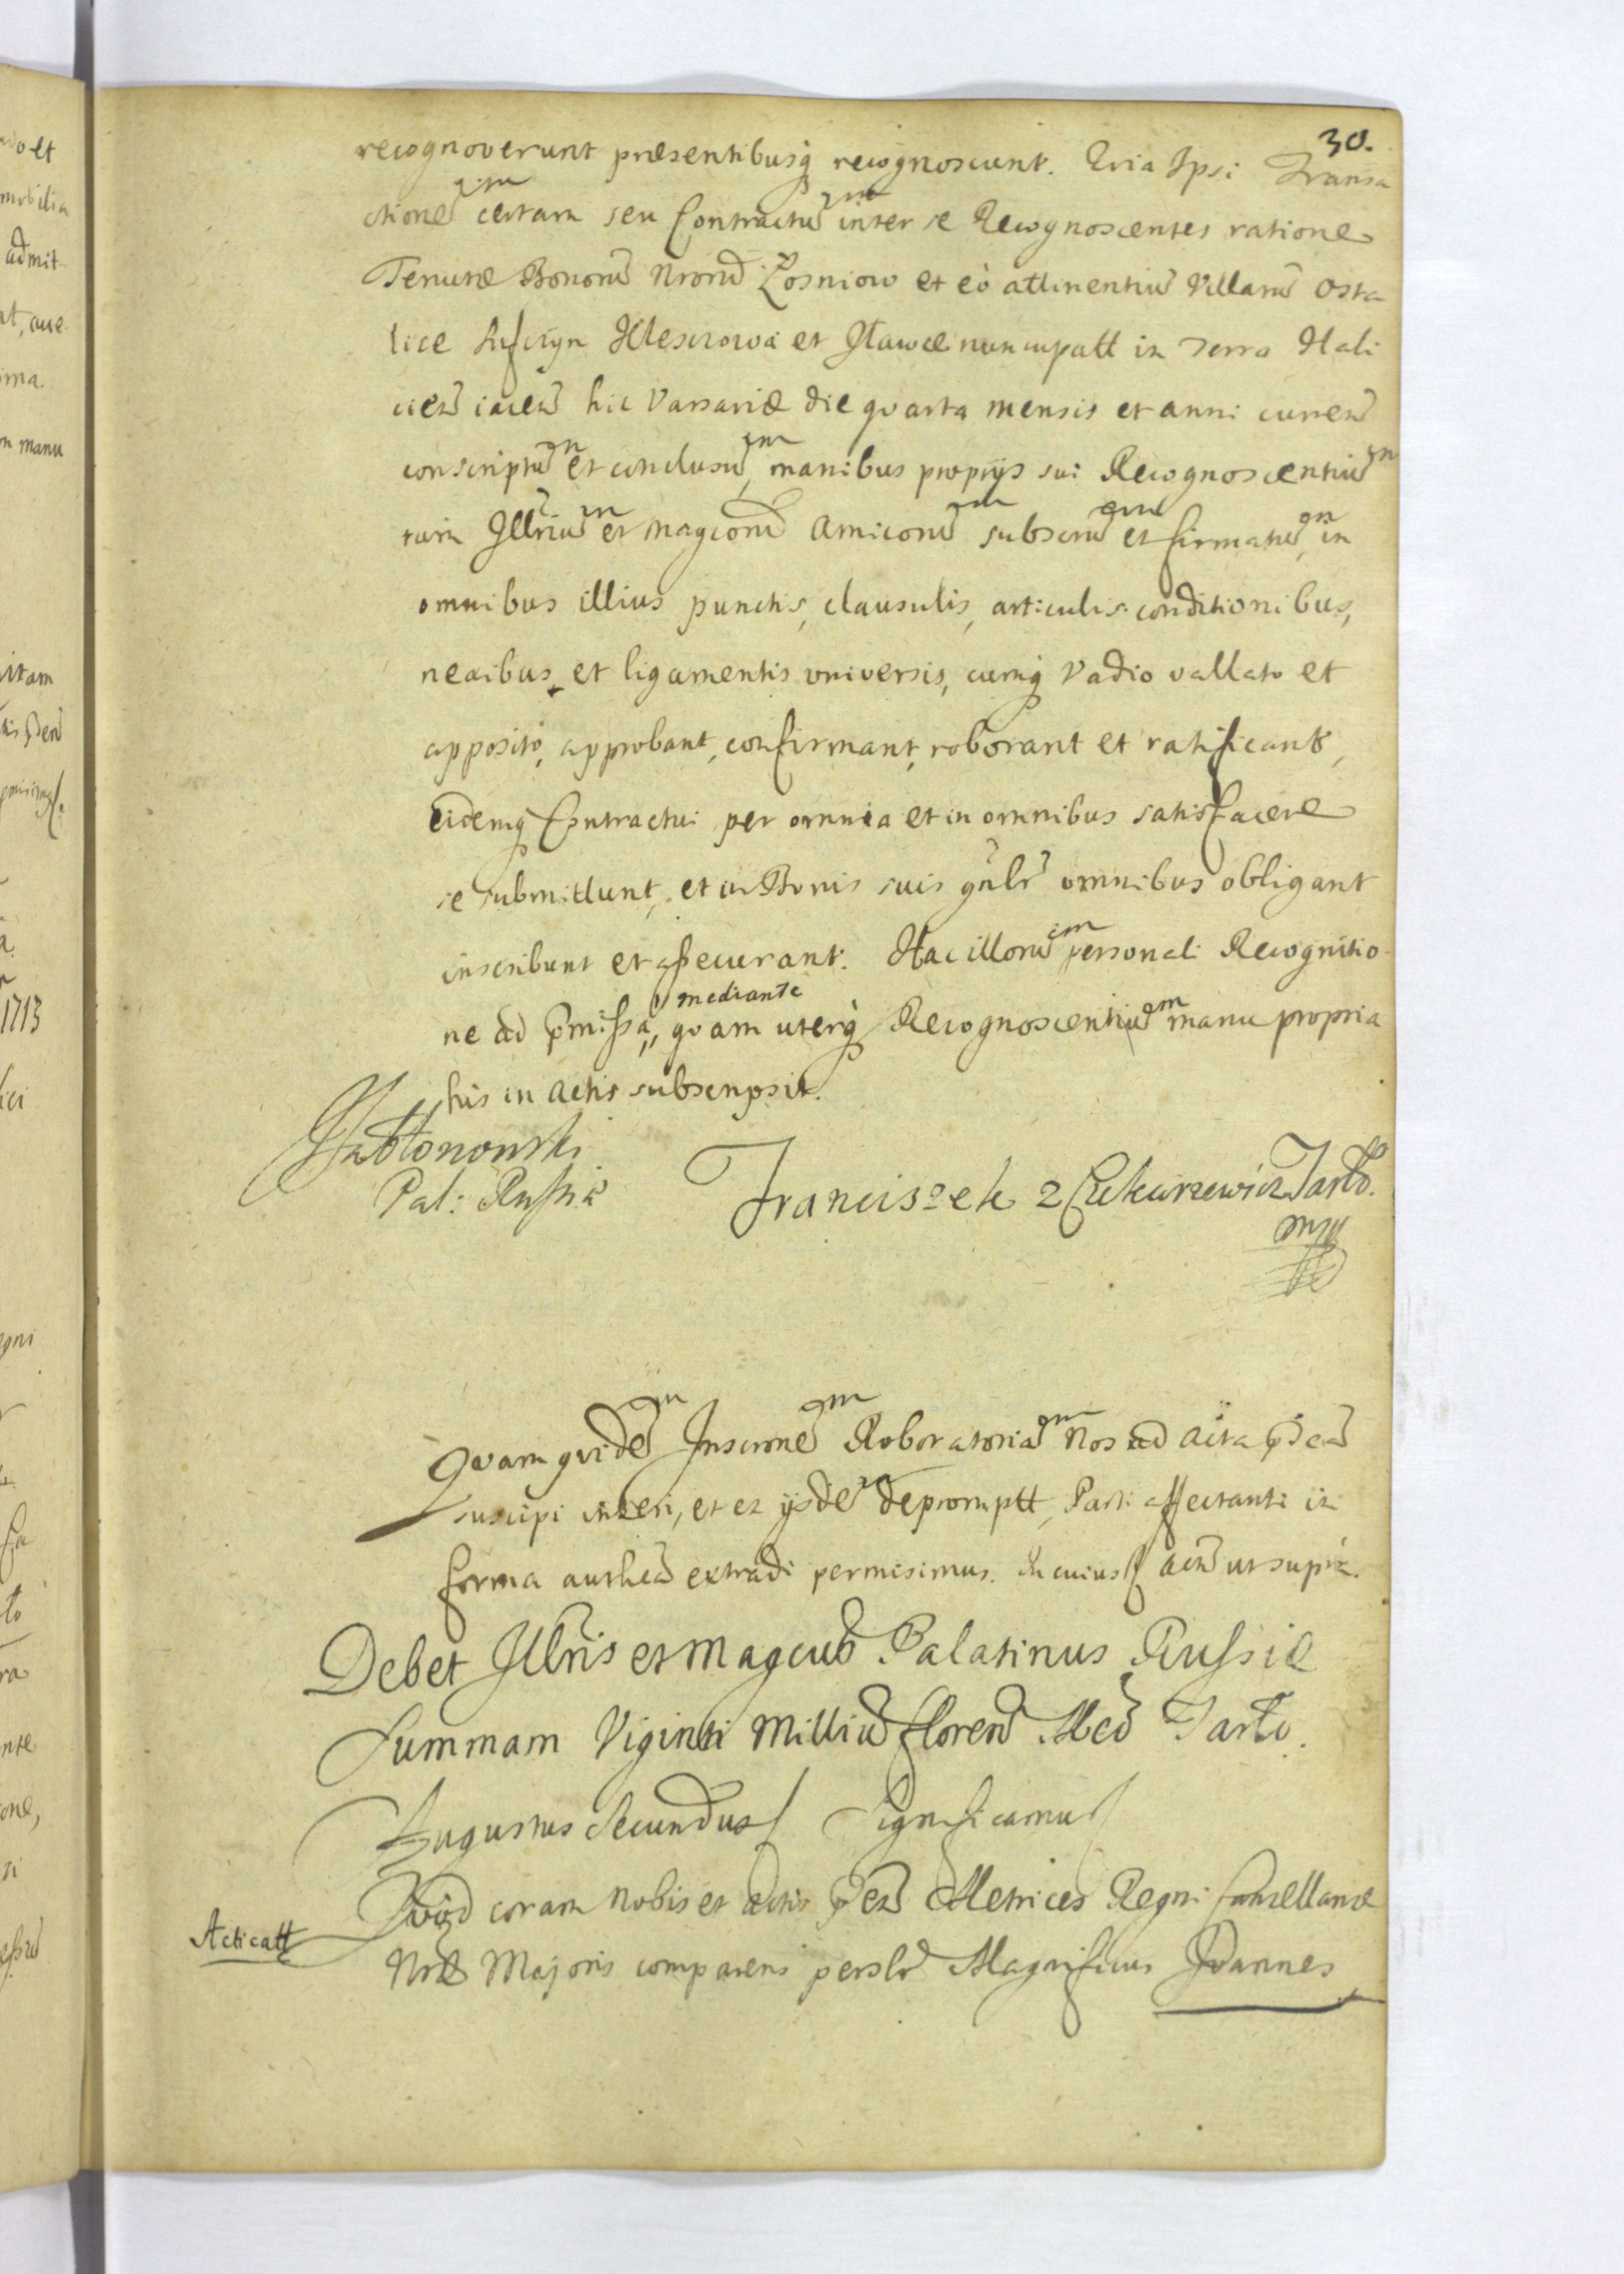 30.
recognoverunt præsentibusq̃ recognoscunt. Quia Ipsi Transa
ctionem certam seu Contractum inter se Recognoscentes ratione
Tenutæ Bonorũ Nrorũ Łosniow et eò attinentiũ Villarũ Osta
et Iławce nuncupatt in Terra Hali
cieñ iaceñ hic Varsaviæ die qvarta mensis et anni curreñ
conscriptum et conclusum, manibus proprijs sui Recognoscentium
tum Illrium et Magcorũ Amicorum subscrum et firmatum, in
omnibus illius punctis, clausulis, articulis conditionibus,
nexibus, et ligamentis universis, cumq̃ Vadio vallato et
apposito, approbant, confirmant, roborant et ratificant,
eidemq̃ Contractui per omnia et in omnibus satisfacere
se submittunt, et in Bonis suis gñlr omnibus obligant
inscribunt et assecurant. Hac illorum personali Recognitio-
ne ad p̃missa, mediante qvam uterq̃ Recognoscentium manu propria
his in actis subscripsit.
Jabłonowski
Pal: Russiæ
Franciszek z Czekarzewicz Tarło.
mpp
Qvam qvidem Inscrionem Roboratoriam Nos ad acta p̃señ
suscipi inseri, et ex ijsdem depromptt, Parti affectanti in
forma autheñ extradi permisimus. In cuius actũ ut supra.
Debet Illris et Magcus Palatinus Russiæ
Summam Viginti Milliũ floreñ Mco Tarło.
Augustus Secundus Significamus
Qviã coram Nobis et actis p̃señ Metrices Regni Cancellariæ
Acticatt
Nræ Majoris comparens perslr Magnificus Joannes